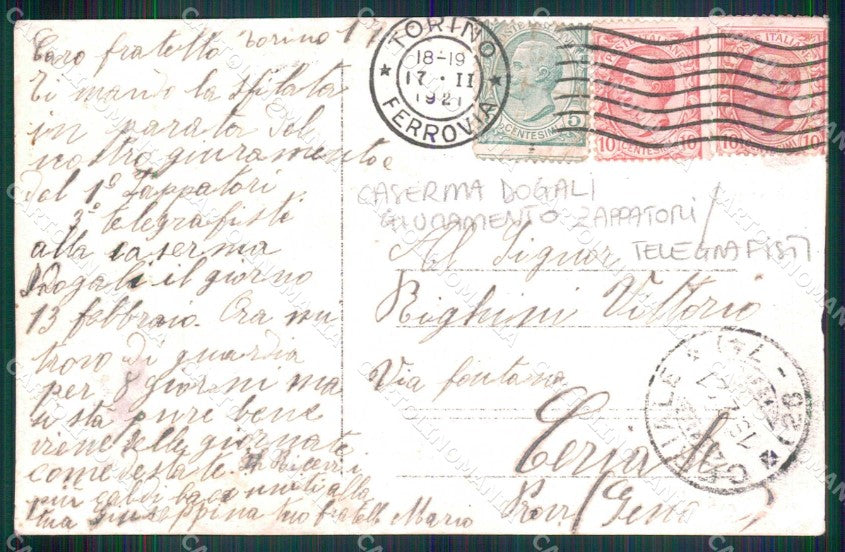 Caro fratello Torino 17
Ti mando la sfilata
in parata del
nostro giuramento
del 1º Zappatori
3º telegrafisti
alla caserma
Dogali il giorno
13 febbraio. Ora mi
trovo di guardia
per 8 giorni ma
si sta pure bene
viene delle giornate
come destate. Ricevi i
più caldi baci uniti alla
tua Giuseppina tuo fratello Mario
TORINO
18-19
17 · II
1921
FERROVIA
POSTE ITALIANE
CENTESIMI 5
POSTE ITALIANE
10 CENTESIMI 10
POSTE ITALIANE
10 CENTESIMI 10
CASERMA DOGALI
GIURAMENTO ZAPPATORI
TELEGRAFISTI
Al Signor
Righini Vittorio
Via fontana
Ceriale
Prov
CERIALE
CARTOLINOMANIA